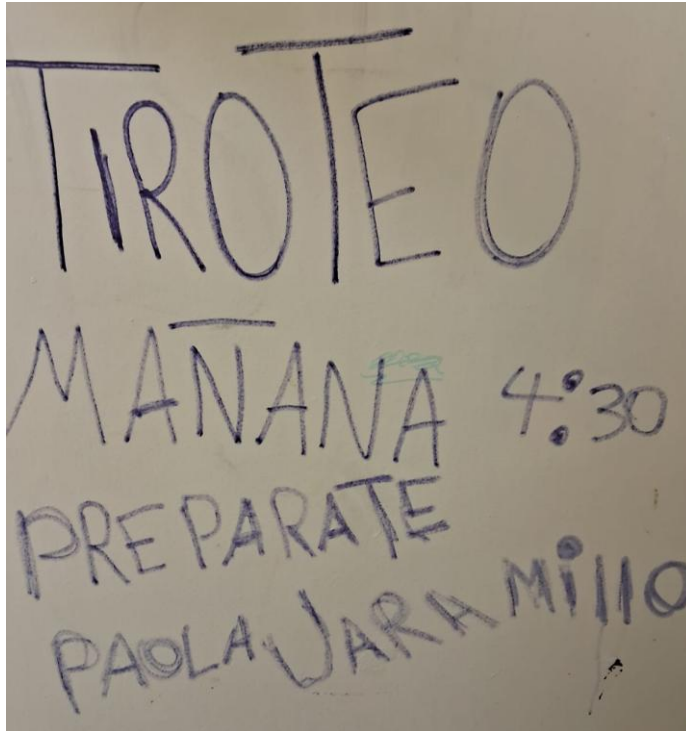 TIROTEO
MAÑANA 4:30
PREPARATE
PAOLA JARAMillO